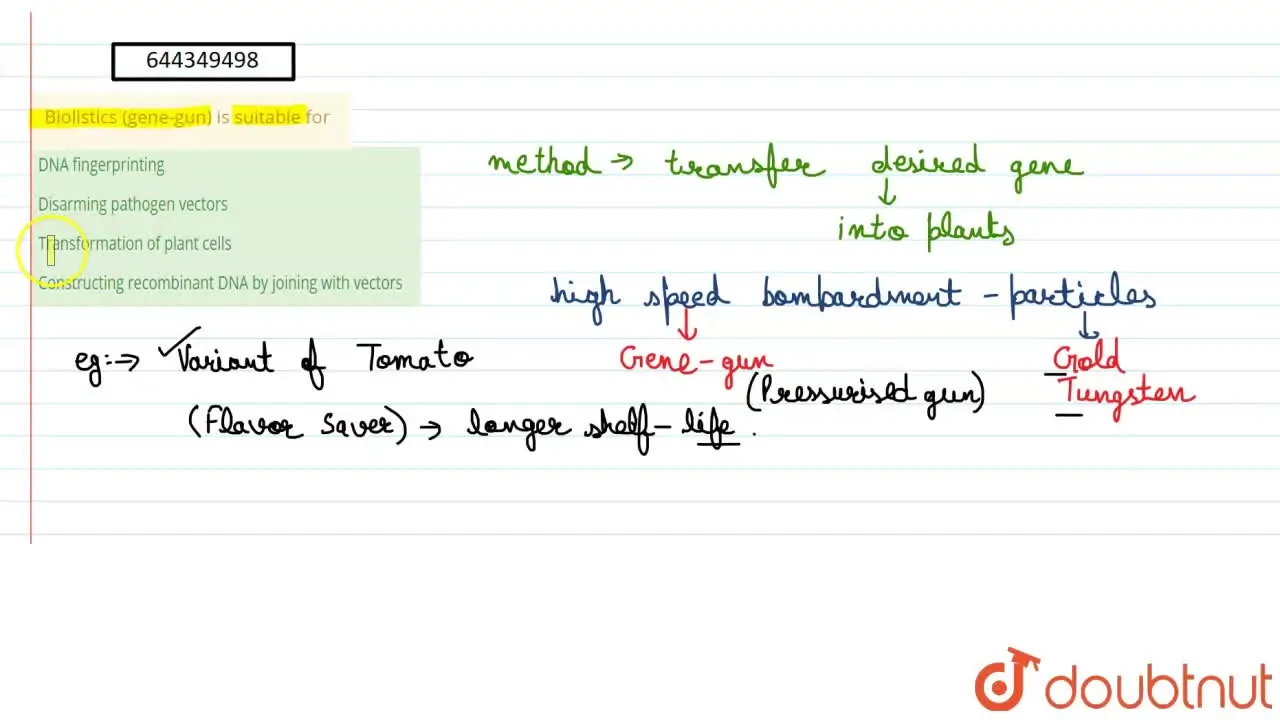 644349498
Biolistics (gene-gun) is suitable for
DNA fingerprinting
Disarming pathogen vectors
Transformation of plant cells
Constructing recombinant DNA by joining with vectors
method → transfer desired gene
↓
into plants
high speed bombardment - particles
↓ ↓
Gene-gun Gold
(Pressurised gun) Tungsten
eg:→ ✓Variant of Tomato
(Flavor Saver) → longer shelf-life.
doubtnut